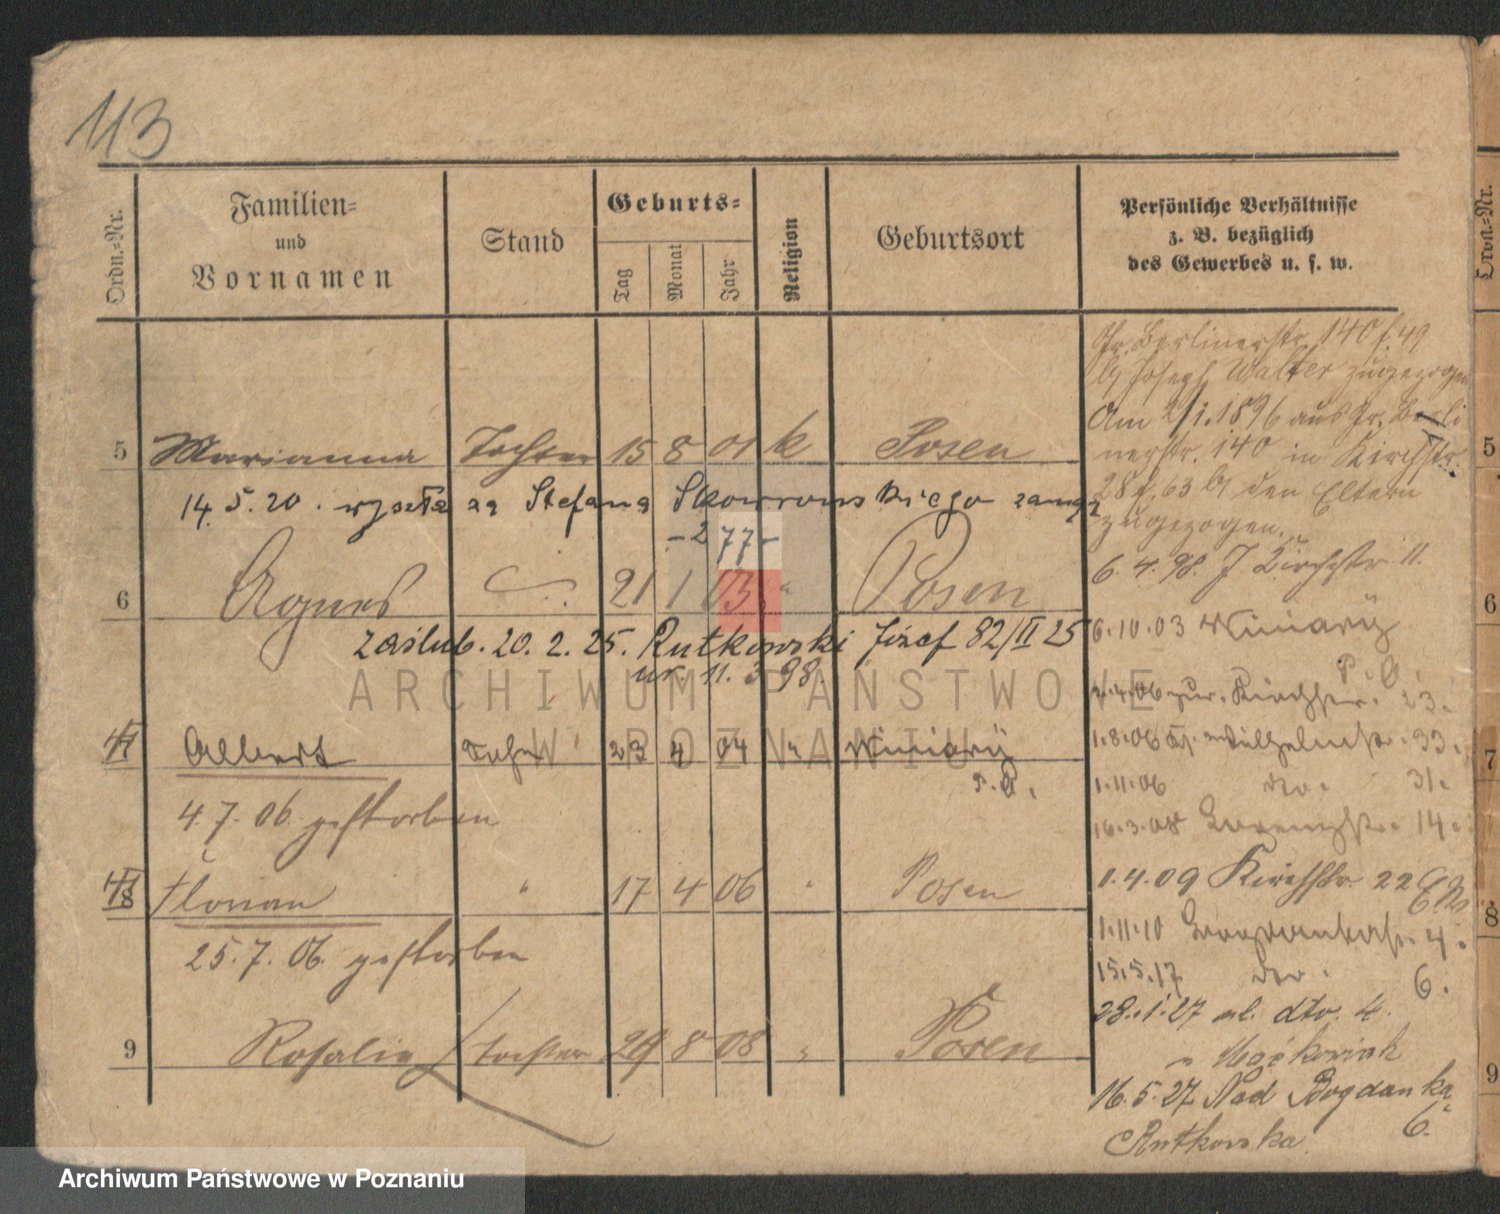 113
Ordn.=Nr.
Familien=
und
Vornamen
Stand
Geburts=
Tag
Monat
Jahr
Religion
Geburtsort
Persönliche Verhältnisse
z. B. bezüglich
des Gewerbes u. s. w.
Gr. Berlinerstr. 140 f. 49
b/ Joseph Walter zugezogen
Am 2/1. 1896 aus Gr. Berli
nerstr. 140 in Kirchstr.
28 f. 63 b/ den Eltern
zugezogen.
5 Marianna Tochter 15 8 01 k Posen
14. 5. 20. wyszła za Stefana Skowrońskiego zamąż
- 277 -
6 Agnes 21 1 03 " Posen
zaślub. 20. 2. 25. Rutkowski Józef 82/II 25
ur. 11. 3 98.
6. 4. 98. J. Kirchstr. 11.
6.10.03 Winiary
P. O.
.4.06 zur. Kirchstr. 23.
Albert Sohn 23 4 04 " Winiary
P. O.
4. 7. 06. gestorben
1.8.06 Wilhelmstr. 33.
1.11.06 dto. 31.
16.3.08 14.
8 Florian " 17 4 06 " Posen
25. 7. 06. gestorben
1.4.09 Kirchstr. 22
1.11.10 4.
15.5.17 dto. 6.
28.1.27 ul. dto. 4.
9 Rosalie Tochter 29 8 08 " Posen
" Maćkowiak
16.5.27 Nad Bogdanką
6.
Rutkowska
Ordn.=Nr.
5
6
7
8
9
ARCHIWUM PAŃSTWOWE
W POZNANIU
Archiwum Państwowe w Poznaniu